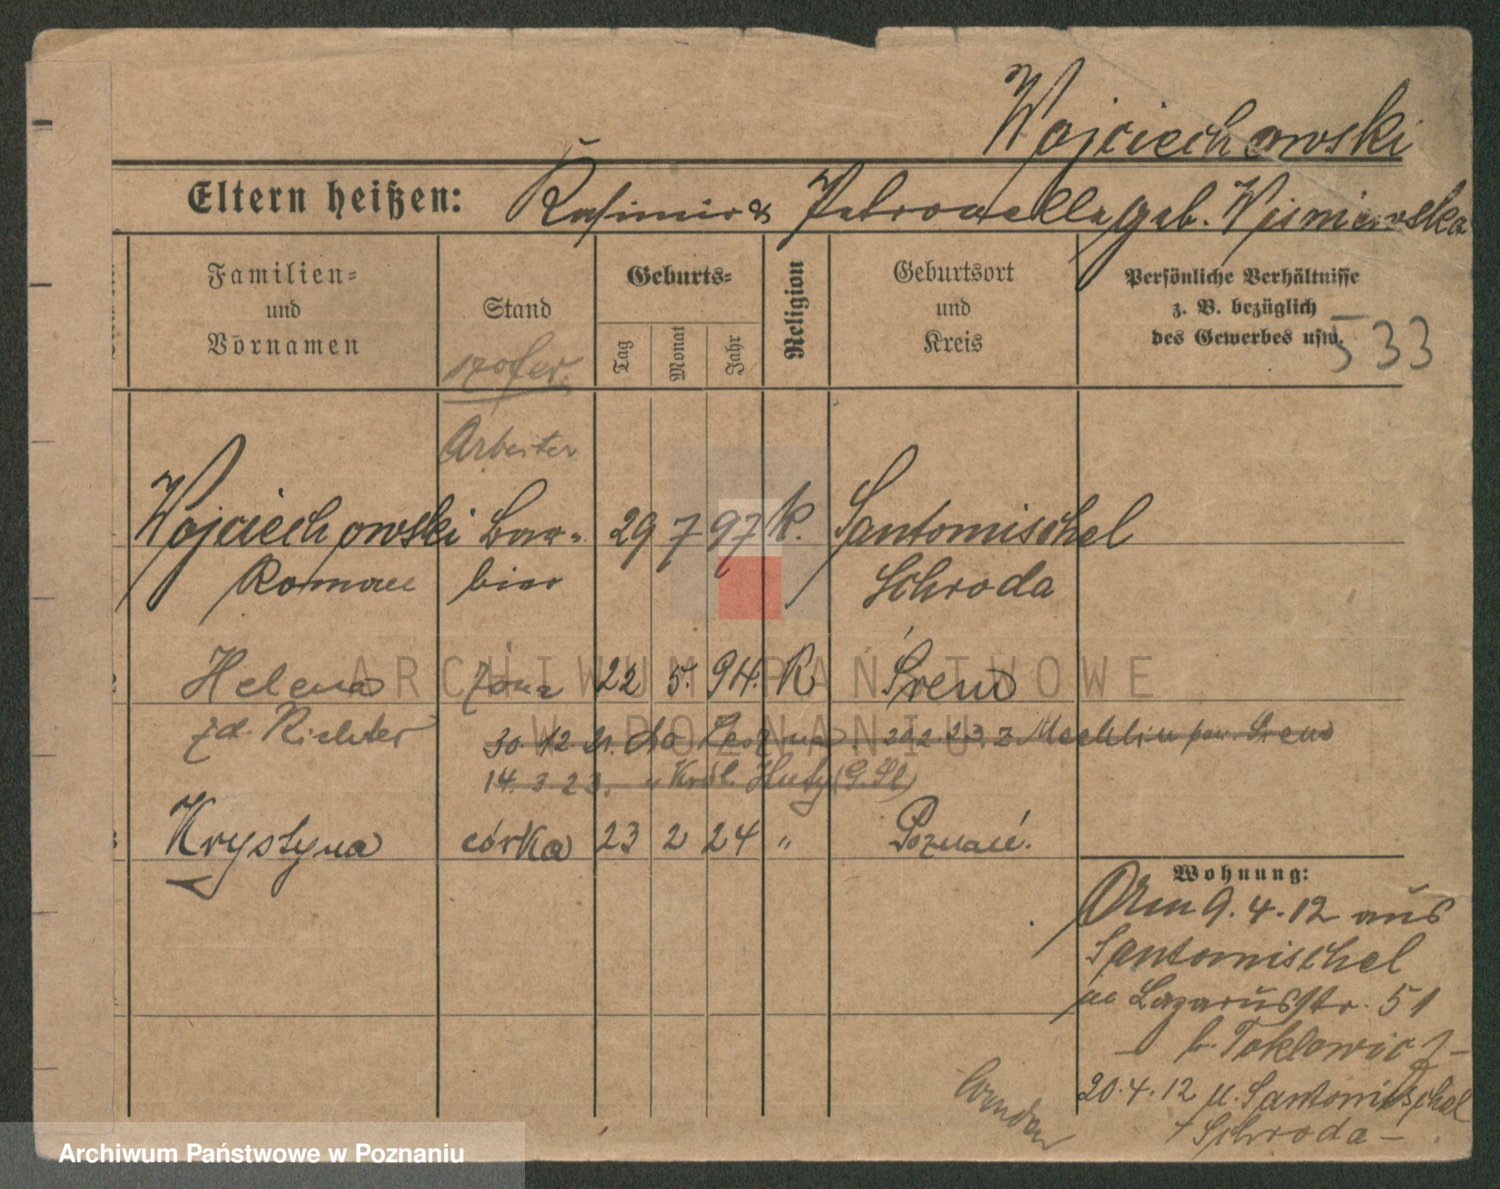 Wojciechowski
Eltern heißen: Kasimir & Petronella geb. Wisniewska
Familien= und Vornamen
Stand
Geburts=
Tag Monat Jahr
Religion
Geburtsort und Kreis
Persönliche Verhältnisse
z. B. bezüglich
des Gewerbes usw.
533
szofer
Arbeiter
Wojciechowski Bar= 29 7 97 K. Santomischel
Roman bier Schroda
Helena żona 22 5. 94. K Śrem
zd. Richter
30 12 21. do 20 2 23. z Mechlin pow. Śrem
14. 3. 23. " Król. Huty (G. Śl)
Krystyna córka 23 2 24 " Poznań.
Wohnung:
9. 4. 12 aus
Santomischel
Lazarusstr. 51
b. Toklowicz
20. 4. 12 n. Santomischel
Schroda
ARCHIWUM PAŃSTWOWE
W POZNANIU
Archiwum Państwowe w Poznaniu